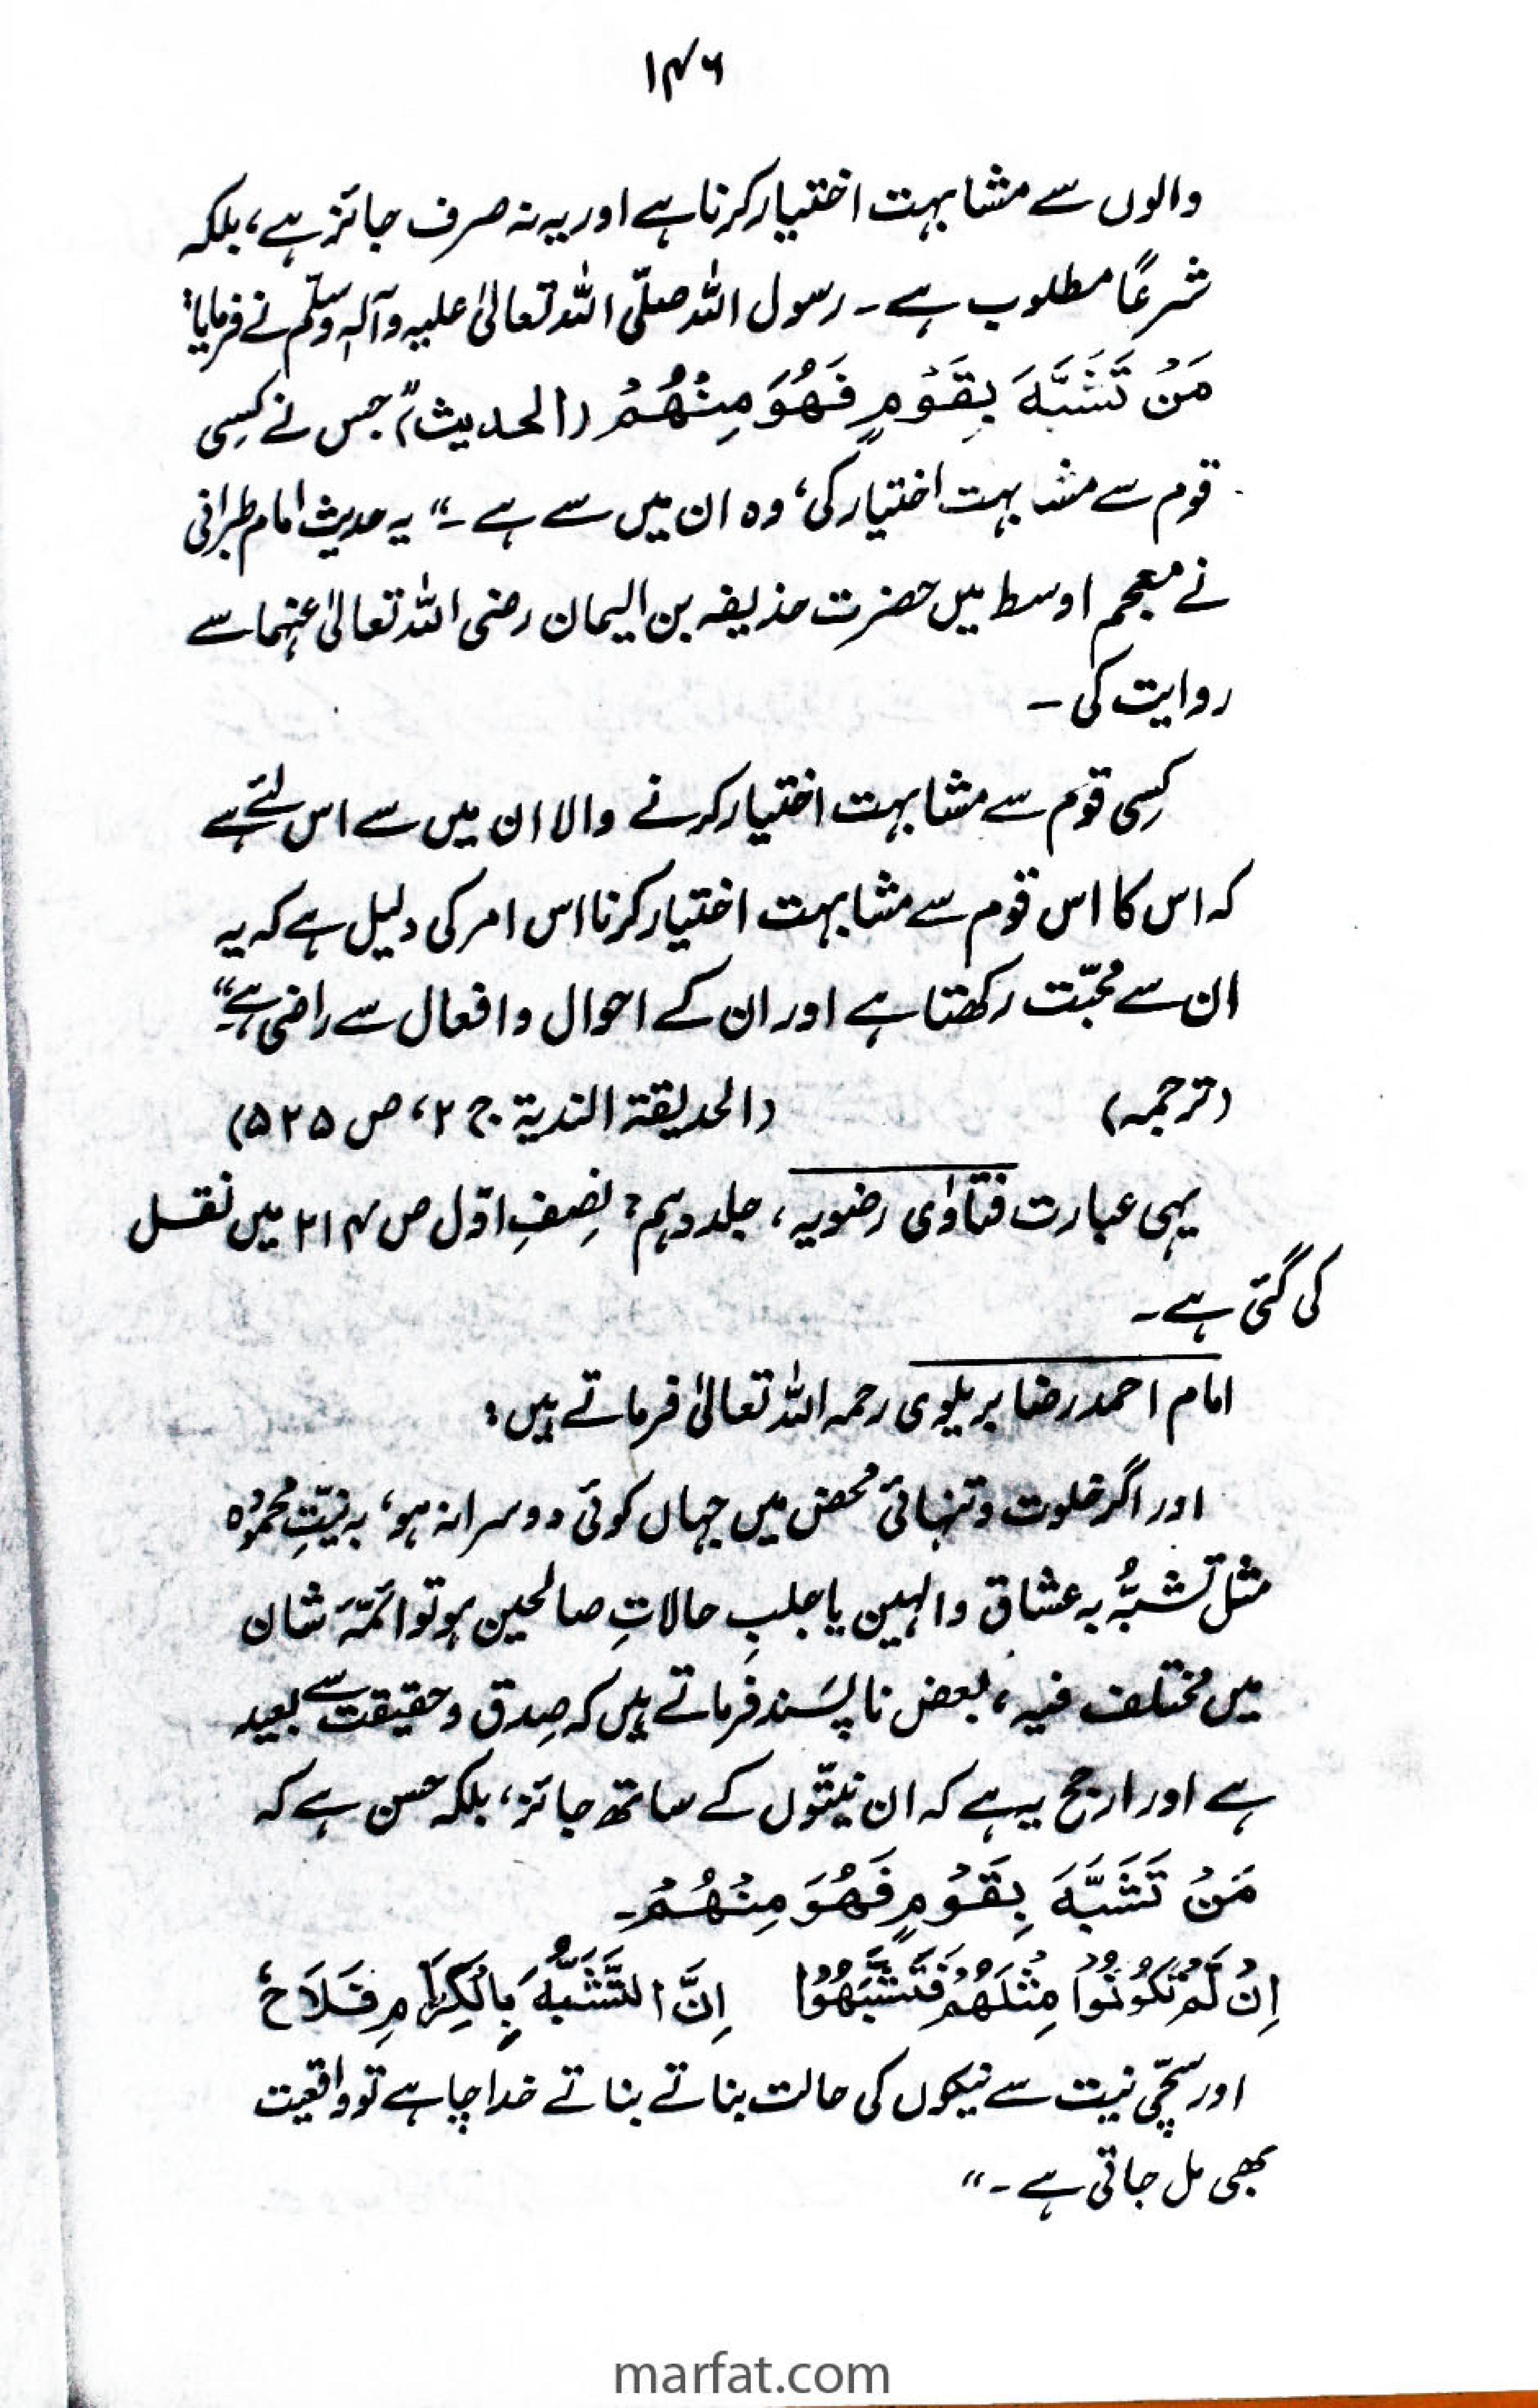 ۱۴۶
والوں سے مشابہت اختیار کرنا ہے اور یہ نہ صرف جائز ہے، بلکہ
شرعًا مطلوب ہے۔ رسول اللہ صلّی اللہ تعالیٰ علیہ وآلہٖ وسلّم نے فرمایا:
مَنْ تَشَبَّهَ بِقَوْمٍ فَهُوَ مِنْهُمْ (الحدیث)" جس نے کِسی
قوم سے مشابہت اختیار کی، وہ ان میں سے ہے۔" یہ حدیث امام طبرانی
نے معجم اوسط میں حضرت حذیفہ بن الیمان رضی اللہ تعالیٰ عنہما سے
روایت کی ۔
کِسی قوم سے مشابہت اختیار کرنے والا ان میں سے اس لئے ہے
کہ اس کا اس قوم سے مشابہت اختیار کرنا اس امر کی دلیل ہے کہ یہ
ان سے مُحبّت رکھتا ہے اور ان کے احوال و افعال سے راضی ہے۔"
(ترجمہ) (الحدیقۃ الندیۃ ج ۲، ص ۵۲۵)
یہی عبارت فتاوٰی رضویہ، جلد دہم، نِصفِ اوّل ص ۲۱۴ میں نقل
کی گئی ہے۔
امام احمد رضا بریلوی رحمہ اللہ تعالیٰ فرماتے ہیں:
اور اگر خلوت و تنہائی مُحض میں جہاں کوئی دوسرا نہ ہو، بہ نیّتِ محمُودہ
مثل تشبُّہ بہ عشاق والہین یا جلبِ حالاتِ صالحین ہو تو ائمّہَ شان
میں مُختلف فیہ، بعض ناپَسند فرماتے ہیں کہ صِدق و حقیقت سے بعید
ہے اور ارجح یہ ہے کہ ان نیّتوں کے ساتھ جائز، بلکہ حسن ہے کہ
مَنْ تَشَبَّهَ بِقَوْمٍ فَهُوَ مِنْهُمْ۔
اِنْ لَّمْ تَكُوْنُوْا مِثْلَهُمْ فَتَشَبَّهُوْا اِنَّ التَّشَبُّهَ بِالْكِرَامِ فَلَاحٌ
اور سچّی نیت سے نیکوں کی حالت بناتے بناتے خدا چاہے تو واقعیت
بھی مل جاتی ہے۔"
marfat.com